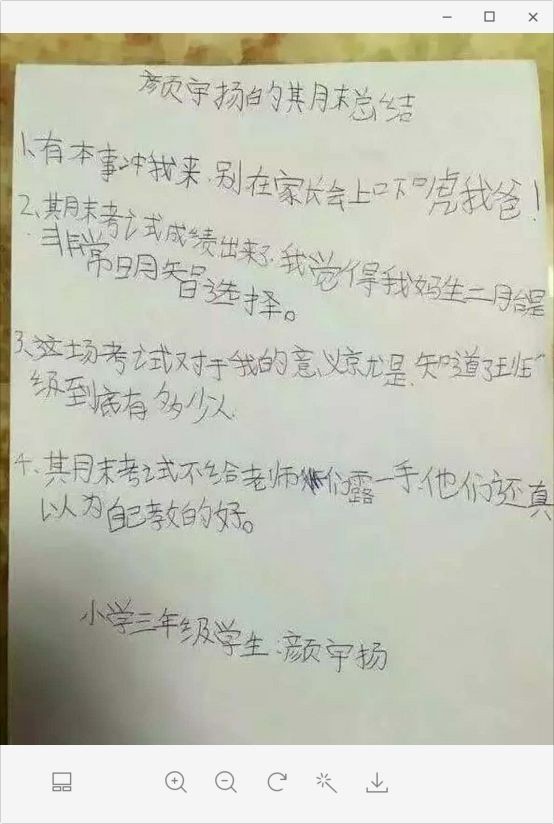 颜宇扬的其月末总结
1、有本事冲我来，别在家长会上吓唬我爸！
2、其月末考试成绩出来了，我觉得我妈生二月台是
非常明智选择。
3、这场考试对于我的意义京尤是，知道了班
级到底有多少人
4、其月末考试不给老师们露一手，他们还真
以为自己教的好。
小学三年级学生：颜宇扬